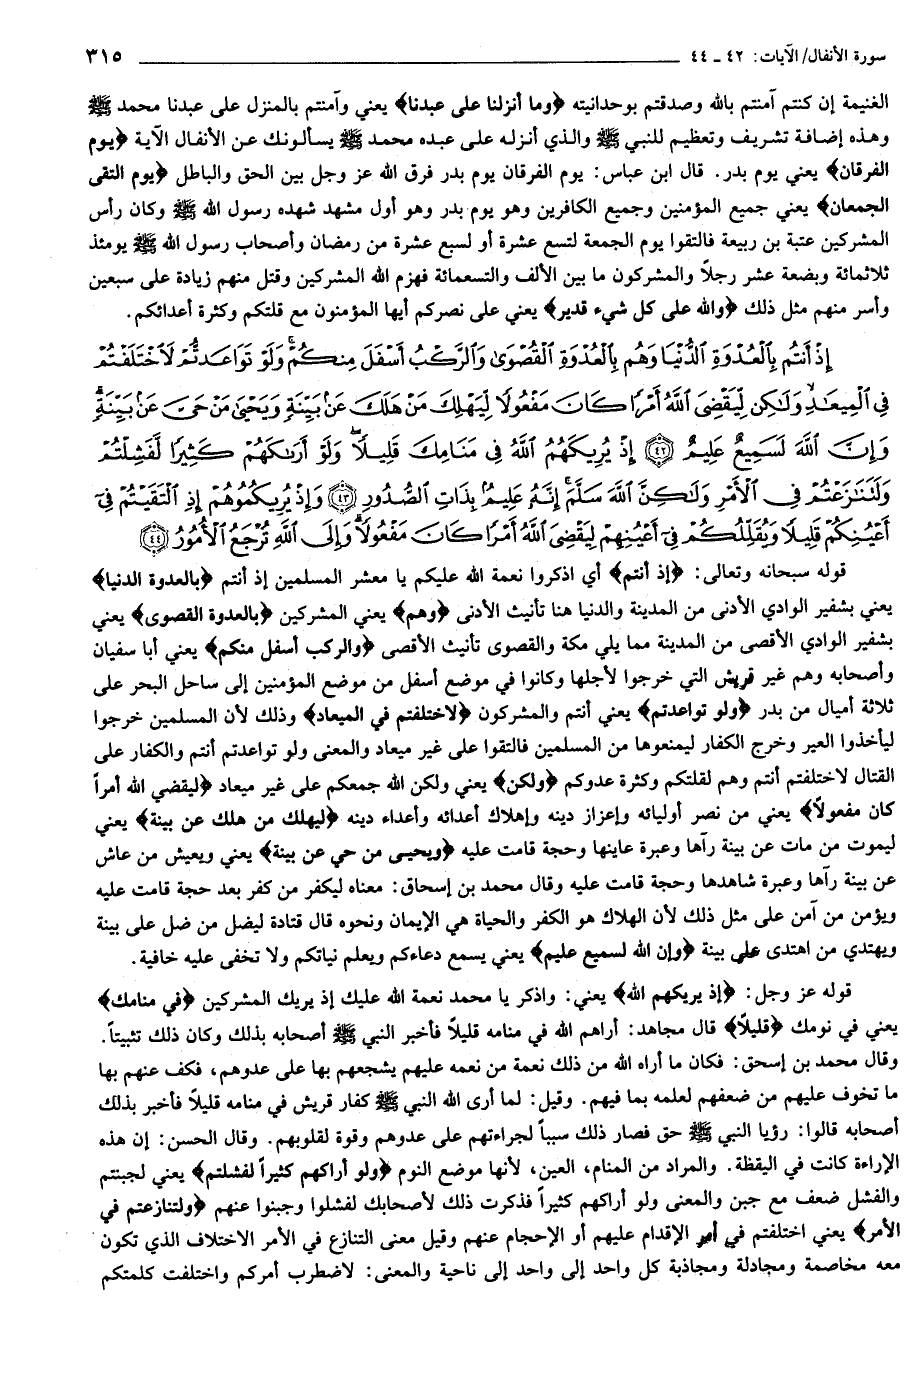 سورة الأنفال/ الآيات: ٤٢ ـ ٤٤ ٣١٥
الغنيمة إن كنتم آمنتم بالله وصدقتم بوحدانيته ﴿وما أنزلنا على عبدنا﴾ يعني وآمنتم بالمنزل على عبدنا محمد ﷺ
وهذه إضافة تشريف وتعظيم للنبي ﷺ والذي أنزله على عبده محمد ﷺ يسألونك عن الأنفال الآية ﴿يوم
الفرقان﴾ يعني يوم بدر. قال ابن عباس: يوم الفرقان يوم بدر فرق الله عز وجل بين الحق والباطل ﴿يوم التقى
الجمعان﴾ يعني جميع المؤمنين وجميع الكافرين وهو يوم بدر وهو أول مشهد شهده رسول الله ﷺ وكان رأس
المشركين عتبة بن ربيعة فالتقوا يوم الجمعة لتسع عشرة أو لسبع عشرة من رمضان وأصحاب رسول الله ﷺ يومئذ
ثلاثمائة وبضعة عشر رجلاً والمشركون ما بين الألف والتسعمائة فهزم الله المشركين وقتل منهم زيادة على سبعين
وأسر منهم مثل ذلك ﴿والله على كل شيء قدير﴾ يعني على نصركم أيها المؤمنون مع قلتكم وكثرة أعدائكم.
إِذْ أَنتُم بِالْعُدْوَةِ الدُّنْيَا وَهُم بِالْعُدْوَةِ الْقُصْوَىٰ وَالرَّكْبُ أَسْفَلَ مِنكُمْ ۚ وَلَوْ تَوَاعَدتُّمْ لَاخْتَلَفْتُمْ
فِي الْمِيعَادِ ۙ وَلَٰكِن لِّيَقْضِيَ اللَّهُ أَمْرًا كَانَ مَفْعُولًا لِّيَهْلِكَ مَنْ هَلَكَ عَن بَيِّنَةٍ وَيَحْيَىٰ مَنْ حَيَّ عَن بَيِّنَةٍ ۗ
وَإِنَّ اللَّهَ لَسَمِيعٌ عَلِيمٌ ﴿٤٢﴾ إِذْ يُرِيكَهُمُ اللَّهُ فِي مَنَامِكَ قَلِيلًا ۖ وَلَوْ أَرَاكَهُمْ كَثِيرًا لَّفَشِلْتُمْ
وَلَتَنَازَعْتُمْ فِي الْأَمْرِ وَلَٰكِنَّ اللَّهَ سَلَّمَ ۗ إِنَّهُ عَلِيمٌ بِذَاتِ الصُّدُورِ ﴿٤٣﴾ وَإِذْ يُرِيكُمُوهُمْ إِذِ الْتَقَيْتُمْ فِي
أَعْيُنِكُمْ قَلِيلًا وَيُقَلِّلُكُمْ فِي أَعْيُنِهِمْ لِيَقْضِيَ اللَّهُ أَمْرًا كَانَ مَفْعُولًا ۗ وَإِلَى اللَّهِ تُرْجَعُ الْأُمُورُ ﴿٤٤﴾
قوله سبحانه وتعالى: ﴿إذ أنتم﴾ أي اذكروا نعمة الله عليكم يا معشر المسلمين إذ أنتم ﴿بالعدوة الدنيا﴾
يعني بشفير الوادي الأدنى من المدينة والدنيا هنا تأنيث الأدنى ﴿وهم﴾ يعني المشركين ﴿بالعدوة القصوى﴾ يعني
بشفير الوادي الأقصى من المدينة مما يلي مكة والقصوى تأنيث الأقصى ﴿والركب أسفل منكم﴾ يعني أبا سفيان
وأصحابه وهم غير قريش التي خرجوا لأجلها وكانوا في موضع أسفل من موضع المؤمنين إلى ساحل البحر على
ثلاثة أميال من بدر ﴿ولو تواعدتم﴾ يعني أنتم والمشركون ﴿لاختلفتم في الميعاد﴾ وذلك لأن المسلمين خرجوا
ليأخذوا العير وخرج الكفار ليمنعوها من المسلمين فالتقوا على غير ميعاد والمعنى ولو تواعدتم أنتم والكفار على
القتال لاختلفتم أنتم وهم لقلتكم وكثرة عدوكم ﴿ولكن﴾ يعني ولكن الله جمعكم على غير ميعاد ﴿ليقضي الله أمراً
كان مفعولاً﴾ يعني من نصر أوليائه وإعزاز دينه وإهلاك أعدائه وأعداء دينه ﴿ليهلك من هلك عن بينة﴾ يعني
ليموت من مات عن بينة رآها وعبرة عاينها وحجة قامت عليه ﴿ويحيى من حي عن بينة﴾ يعني ويعيش من عاش
عن بينة رآها وعبرة شاهدها وحجة قامت عليه وقال محمد بن إسحاق: معناه ليكفر من كفر بعد حجة قامت عليه
ويؤمن من آمن على مثل ذلك لأن الهلاك هو الكفر والحياة هي الإيمان ونحوه قال قتادة ليضل من ضل على بينة
ويهتدي من اهتدى على بينة ﴿وإن الله لسميع عليم﴾ يعني يسمع دعاءكم ويعلم نياتكم ولا تخفى عليه خافية.
قوله عز وجل: ﴿إذ يريكهم الله﴾ يعني: واذكر يا محمد نعمة الله عليك إذ يريك المشركين ﴿في منامك﴾
يعني في نومك ﴿قليلاً﴾ قال مجاهد: أراهم الله في منامه قليلاً فأخبر النبي ﷺ أصحابه بذلك وكان ذلك تثبيتاً.
وقال محمد بن إسحق: فكان ما أراه الله من ذلك نعمة من نعمه عليهم يشجعهم بها على عدوهم، فكف عنهم بها
ما تخوف عليهم من ضعفهم لعلمه بما فيهم. وقيل: لما أرى الله النبي ﷺ كفار قريش في منامه قليلاً فأخبر بذلك
أصحابه قالوا: رؤيا النبي ﷺ حق فصار ذلك سبباً لجراءتهم على عدوهم وقوة لقلوبهم. وقال الحسن: إن هذه
الإراءة كانت في اليقظة. والمراد من المنام، العين، لأنها موضع النوم ﴿ولو أراكهم كثيراً لفشلتم﴾ يعني لجبنتم
والفشل ضعف مع جبن والمعنى ولو أراكهم كثيراً فذكرت ذلك لأصحابك لفشلوا وجبنوا عنهم ﴿ولتنازعتم في
الأمر﴾ يعني اختلفتم في أمر الإقدام عليهم أو الإحجام عنهم وقيل معنى التنازع في الأمر الاختلاف الذي تكون
معه مخاصمة ومجادلة ومجاذبة كل واحد إلى واحد إلى ناحية والمعنى: لاضطرب أمركم واختلفت كلمتكم